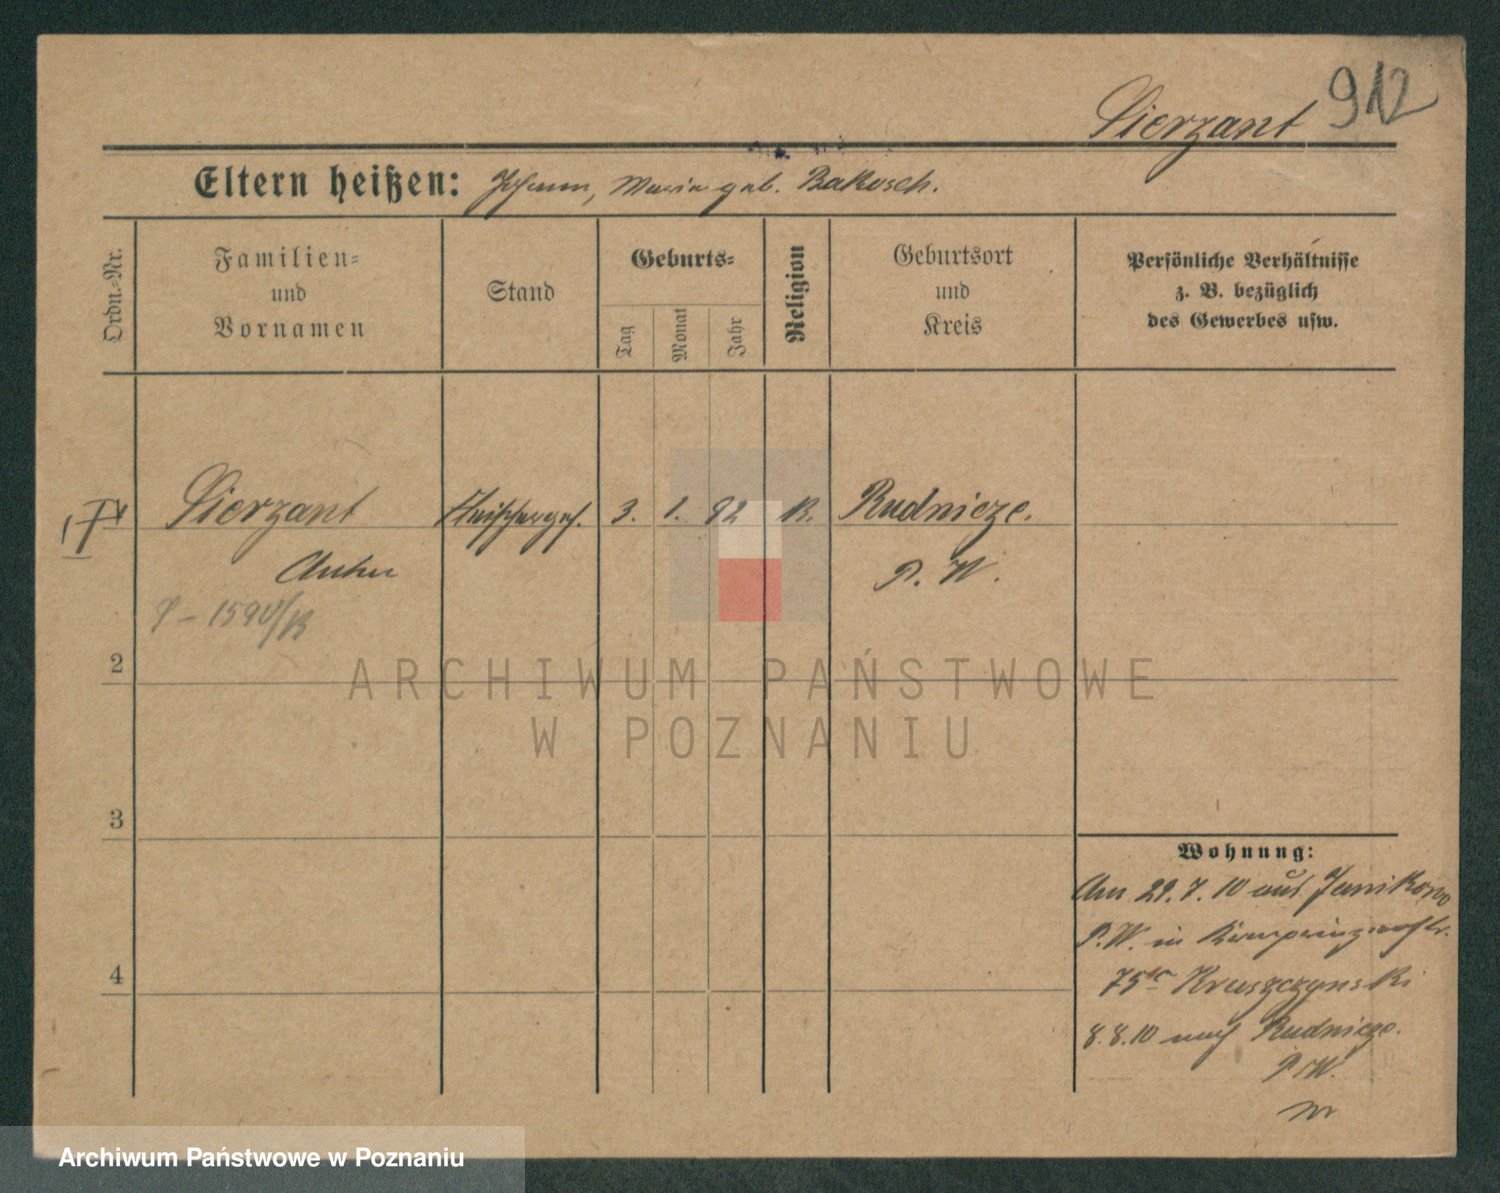 912
Sierzant
Eltern heißen: Johann, Maria geb. Bakosch.
Ordn.-Nr.
Familien- und Vornamen
Stand
Geburts-
Tag
Monat
Jahr
Religion
Geburtsort und Kreis
Persönliche Verhältnisse
z. B. bezüglich
des Gewerbes usw.
Sierzant Fleischerges. 3. 1. 82 K. Rudnicze.
Anton P. W.
2
3
4
Wohnung:
Am 29.7.10 aus Janikowo
P.W. in Kronprinzenstr.
75 Kruszczynski
8.8.10 nach Rudnicze.
P.W.
ARCHIWUM PAŃSTWOWE
W POZNANIU
Archiwum Państwowe w Poznaniu